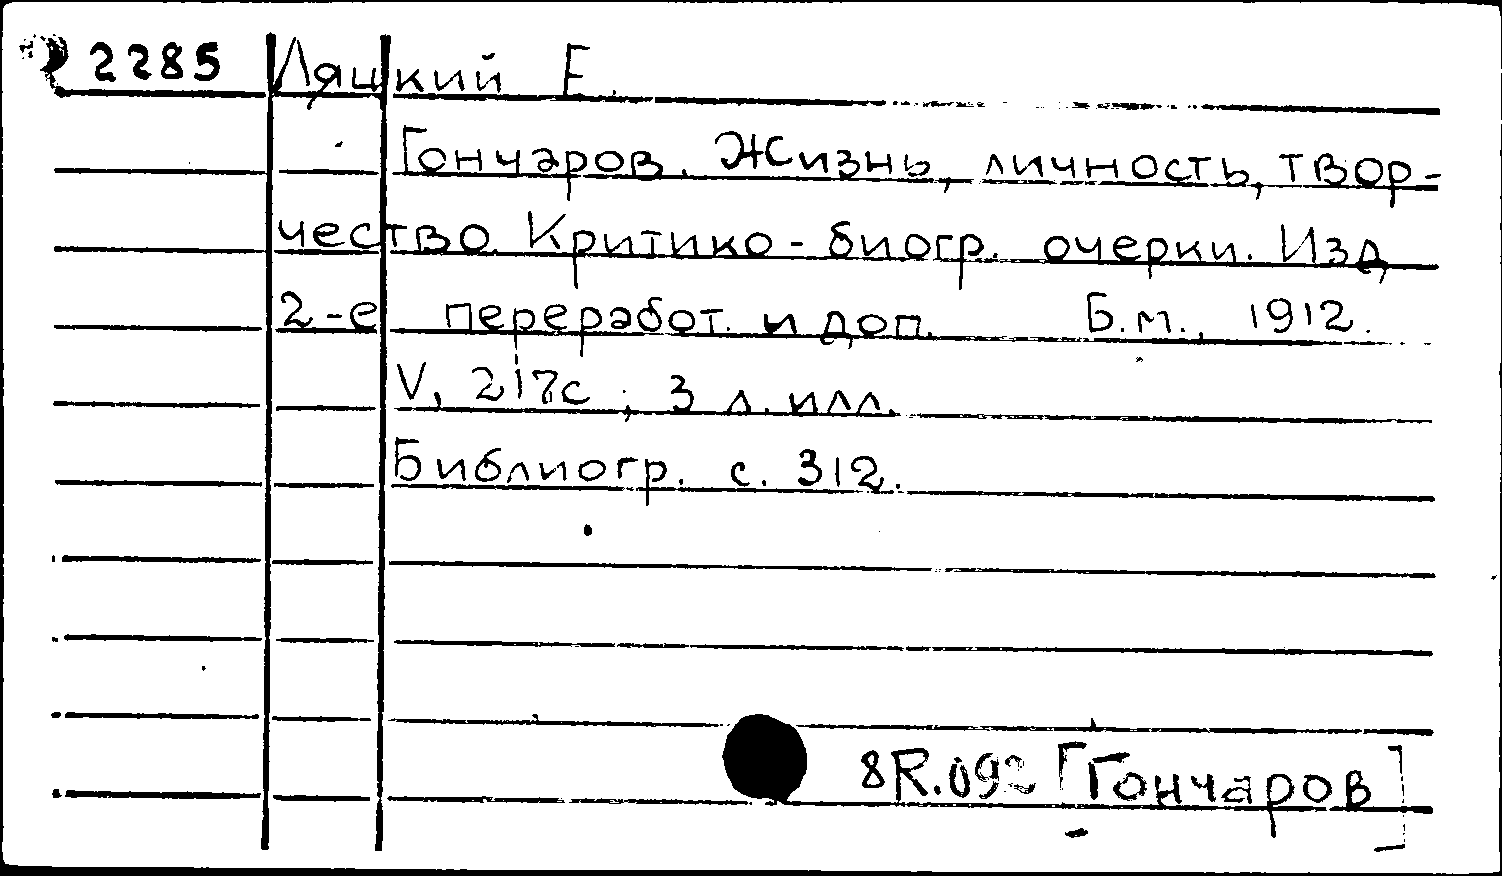 2285 Ляцкий Е.
Гончаров. Жизнь, личность, твор-
чество. Критико-биогр. очерки. Изд.
2-е переработ. и доп. Б.м., 1912.
V, 217с; 3 л. илл.
Библиогр. с. 312.
8R.092 [Гончаров]